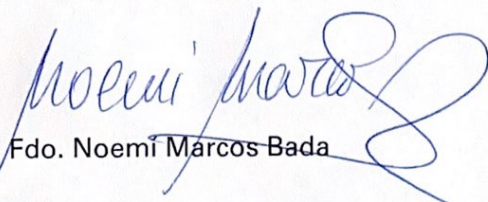 Noemi Marcos
Fdo. Noemí Marcos Bada